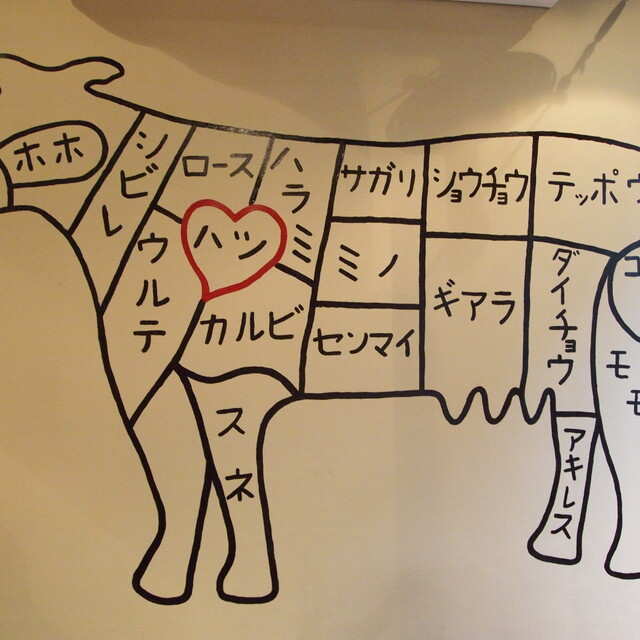 ホホ
シビレ
ロース
ハラミ
サガリ
ショウチョウ
テッポウ
ウルテ
ハツ
ミノ
ギアラ
ダイチョウ
カルビ
センマイ
モモ
スネ
アキレス